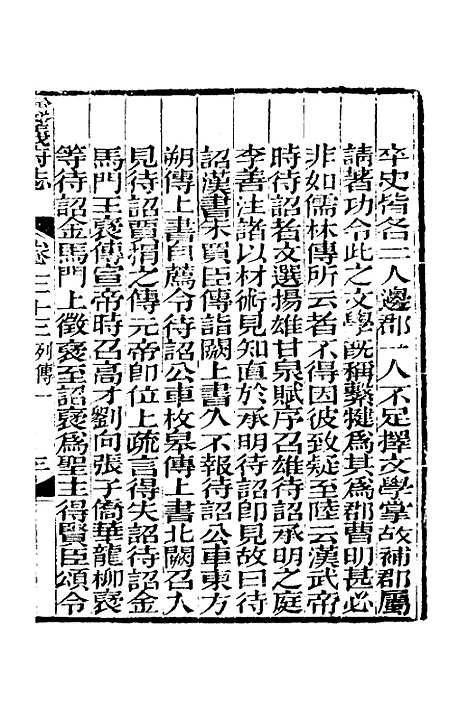 卒史皆各二人邊郡一人不足擇文學掌故補郡屬
請著功令此之文學旣稱繫犍爲其爲郡曹明甚必
非如儒林傳所云者不得因彼致疑至陸云漢武帝
時待詔者文選揚雄甘泉賦序召雄待詔承明之庭
李善注諸以材術見知直於承明待詔卽見故曰待
詔漢書朱買臣傳詣闕上書久不報待詔公車東方
朔傳上書自薦令待詔公車枚皋傳上書北闕召入
見待詔賈捐之傳元帝卽位上疏言得失詔待詔金
馬門王襃傳宣帝時召高才劉向張子僑華龍柳襃
等待詔金馬門上徵襃至詔襃爲聖主得賢臣頌令
府志
卷三十三 列傳一
三